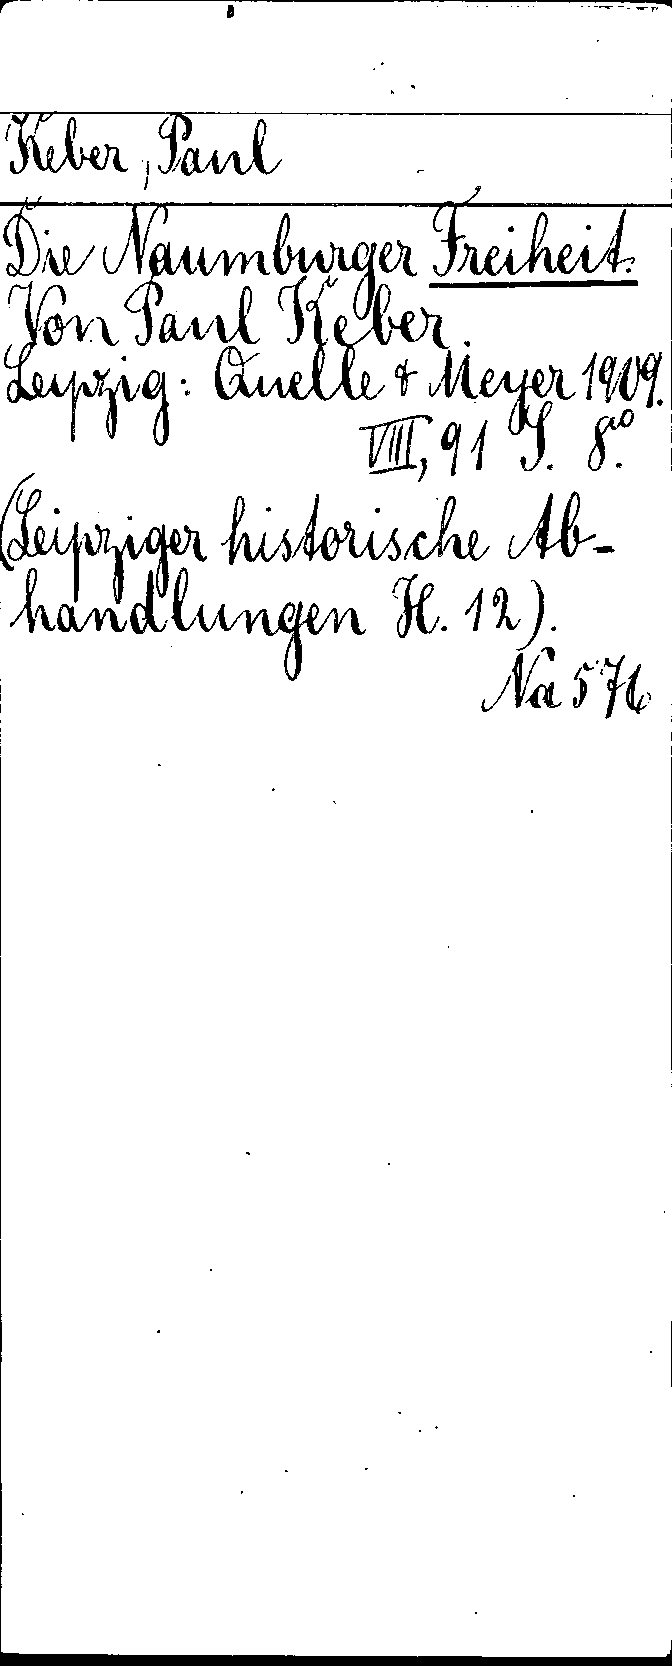 Keber, Paul
Die Naumburger Freiheit.
Von Paul Keber.
Leipzig: Quelle & Meyer 1909.
VIII, 91 S. 8o.
(Leipziger historische Ab-
handlungen H. 12).
Na 576